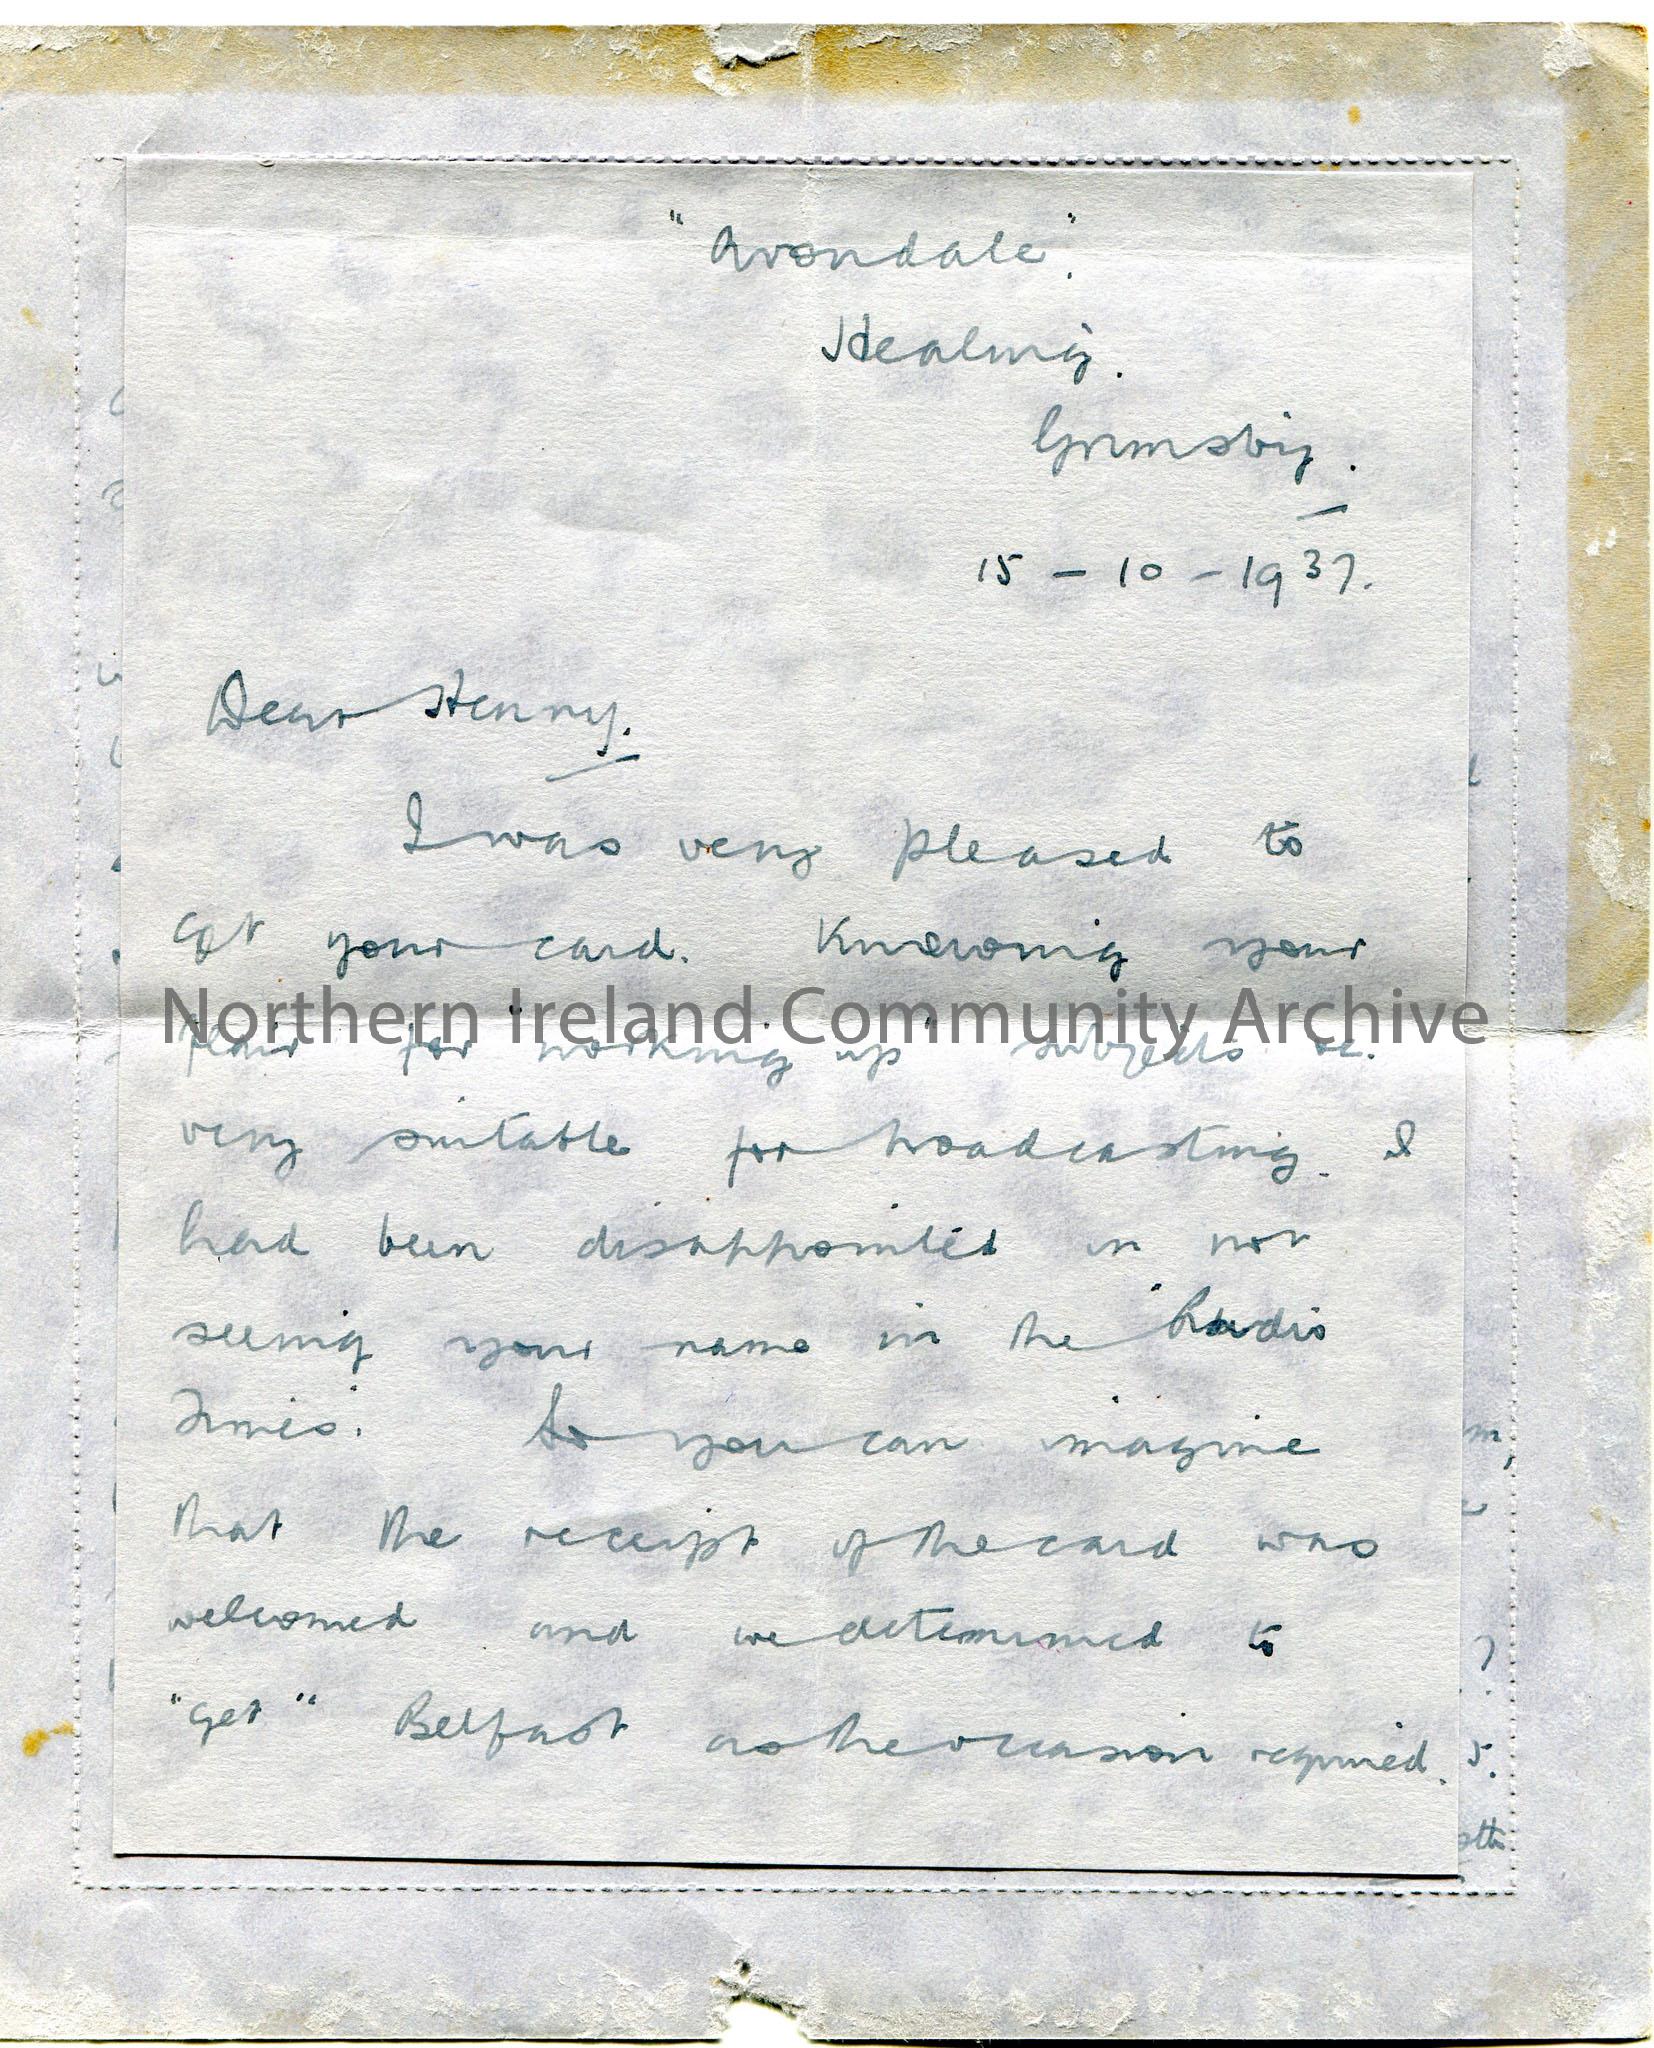 "Avondale".
Healing.
Grimsby.
15 - 10 - 1937.
Dear Henry.
I was very pleased to
get your card. Knowing your
Northern Ireland Community Archive
flair for "working up" subjects
very suitable for broadcasting. I
had been disappointed in not
seeing your name in the "Radio
Times". So you can imagine
that the receipt of the card was
welcomed and we determined to
"get" Belfast as the occasion required.